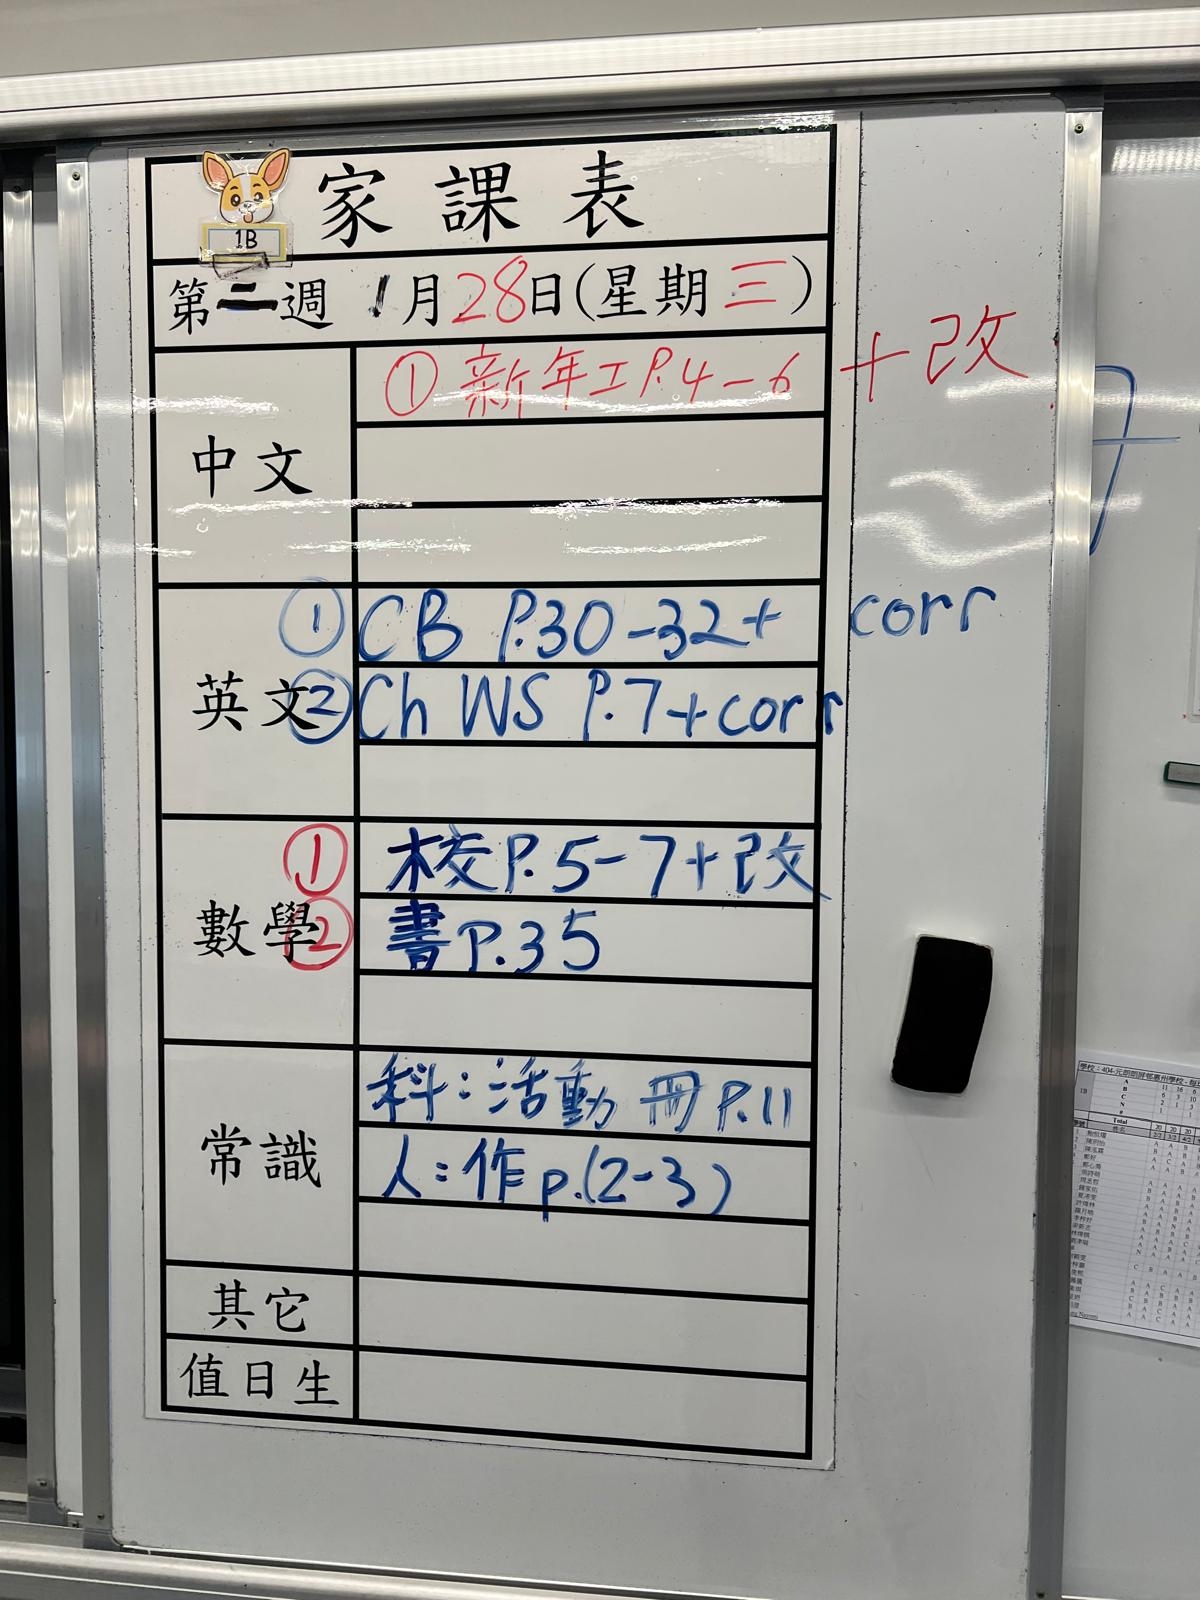 家課表
1B
第二週 1月28日(星期三)
中文
① 新年工P.4-6 + 改
英文
① CB P.30-32+ corr
② Ch WS P.7+corr
數學
① 校P.5-7+改
② 書P.35
常識
科:活動冊P.11
人:作p.(2-3)
其它
值日生
1B
Total